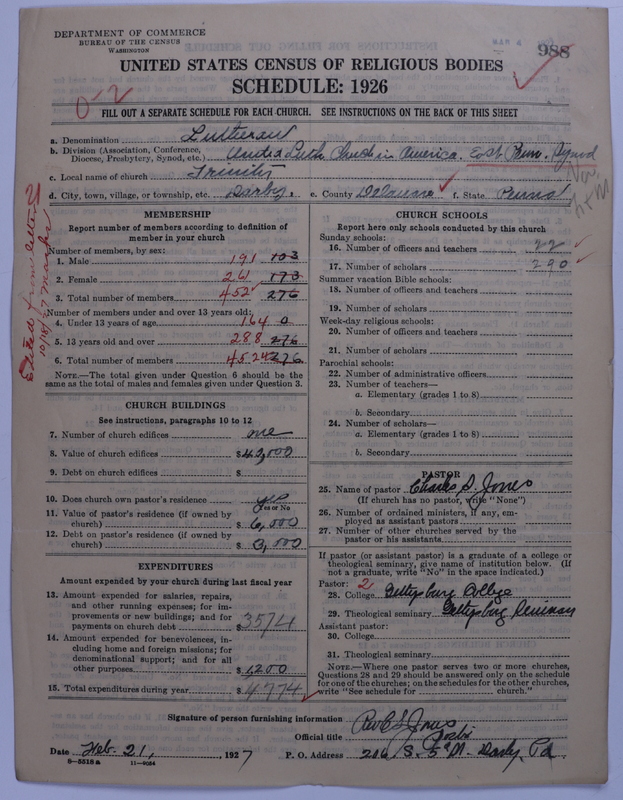 DEPARTMENT OF COMMERCE
BUREAU OF THE CENSUS
WASHINGTON
988
UNITED STATES CENSUS OF RELIGIOUS BODIES
SCHEDULE: 1926
0-2
FILL OUT A SEPARATE SCHEDULE FOR EACH CHURCH. SEE INSTRUCTIONS ON THE BACK OF THIS SHEET
a. Denomination Lutheran
b. Division (Association, Conference, Diocese, Presbytery, Synod, etc.) United Luth Church in America. East Penn. Synod
c. Local name of church Trinity
d. City, town, village, or township, etc. Darby, e. County Delaware f. State Penna
MEMBERSHIP
Report number of members according to definition of
member in your church
Number of members, by sex:
1. Male 191 103
2. Female 261 173
3. Total number of members 452 276
Number of members under and over 13 years old:
4. Under 13 years of age 164 0
5. 13 years old and over 288 276
6. Total number of members 452 276
NOTE.—The total given under Question 6 should be the
same as the total of males and females given under Question 3.
CHURCH BUILDINGS
See instructions, paragraphs 10 to 12
7. Number of church edifices one
8. Value of church edifices $42,000
9. Debt on church edifices $
10. Does church own pastor's residence yes
Yes or No
11. Value of pastor's residence (if owned by
church) $ 6,000
12. Debt on pastor's residence (if owned by
church) $ 3,000
EXPENDITURES
Amount expended by your church during last fiscal year
13. Amount expended for salaries, repairs,
and other running expenses; for im-
provements or new buildings; and for
payments on church debt $3574
14. Amount expended for benevolences, in-
cluding home and foreign missions; for
denominational support; and for all
other purposes $1,200
15. Total expenditures during year $4774
CHURCH SCHOOLS
Report here only schools conducted by this church
Sunday schools:
16. Number of officers and teachers 22
17. Number of scholars 220
Summer vacation Bible schools:
18. Number of officers and teachers
19. Number of scholars
Week-day religious schools:
20. Number of officers and teachers
21. Number of scholars
Parochial schools:
22. Number of administrative officers
23. Number of teachers—
a. Elementary (grades 1 to 8)
b. Secondary
24. Number of scholars—
a. Elementary (grades 1 to 8)
b. Secondary
PASTOR
25. Name of pastor Charles S. Jones
(If church has no pastor, write "None")
26. Number of ordained ministers, if any, em-
ployed as assistant pastors
27. Number of other churches served by the
pastor or his assistants
If pastor (or assistant pastor) is a graduate of a college or
theological seminary, give name of institution below. (If
not a graduate, write "No" in the space indicated.)
Pastor: 2
28. College Gettysburg College
29. Theological seminary Gettysburg Seminary
Assistant pastor:
30. College
31. Theological seminary
NOTE.—Where one pastor serves two or more churches,
Questions 28 and 29 should be answered only on the schedule
for one of the churches; on the schedules for the other churches,
write "See schedule for church."
Signature of person furnishing information Rev C S Jones
Official title Pastor
Date Feb. 21, 1927 P. O. Address 206 S. 5th St. Darby, Pa
8-5518a 11-9054